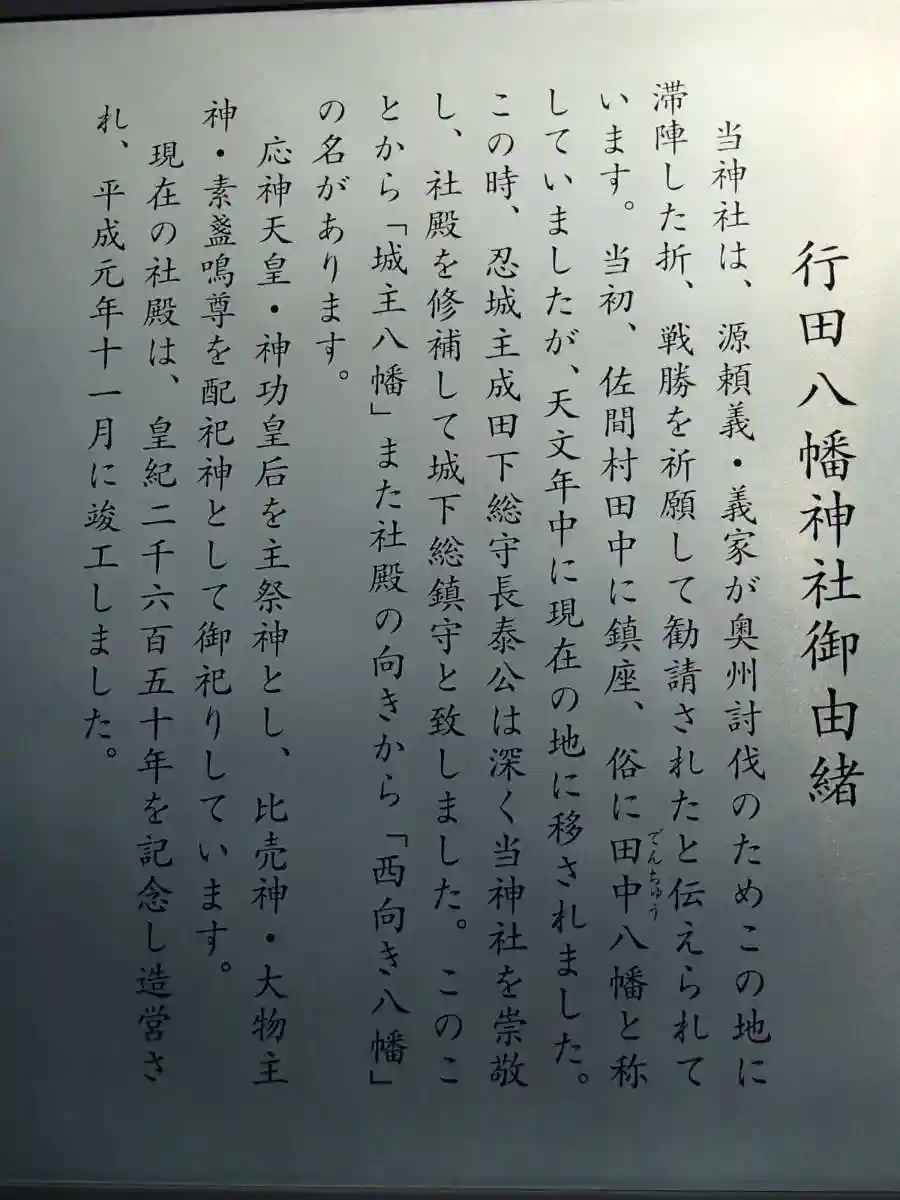 行田八幡神社御由緒
当神社は、源頼義・義家が奥州討伐のためこの地に
滞陣した折、戦勝を祈願して勧請されたと伝えられて
います。当初、佐間村田中に鎮座、俗に田中八幡と称
でんちゅう
していましたが、天文年中に現在の地に移されました。
この時、忍城主成田下総守長泰公は深く当神社を崇敬
し、社殿を修補して城下総鎮守と致しました。このこ
とから「城主八幡」また社殿の向きから「西向き八幡」
の名があります。
応神天皇・神功皇后を主祭神とし、比売神・大物主
神・素盞鳴尊を配祀神として御祀りしています。
現在の社殿は、皇紀二千六百五十年を記念し造営さ
れ、平成元年十一月に竣工しました。